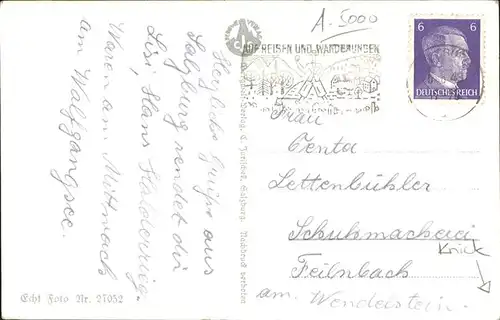 Herzliche Grüße aus
Salzburg sendet dir
Lisi, Hans Haldenrieg.
Waren am Mittwoch
am Wolfgangsee.
Echt Foto Nr. 27052
A. 5000
AUF REISEN UND WANDERUNGEN
6 6
DEUTSCHES REICH
Frau
Centa
Lettenbühler
Schuhmacherei
Feilnbach
am Wendelstein
Knick
Verlag, C. Jurischek, Salzburg. Nachdruck verboten